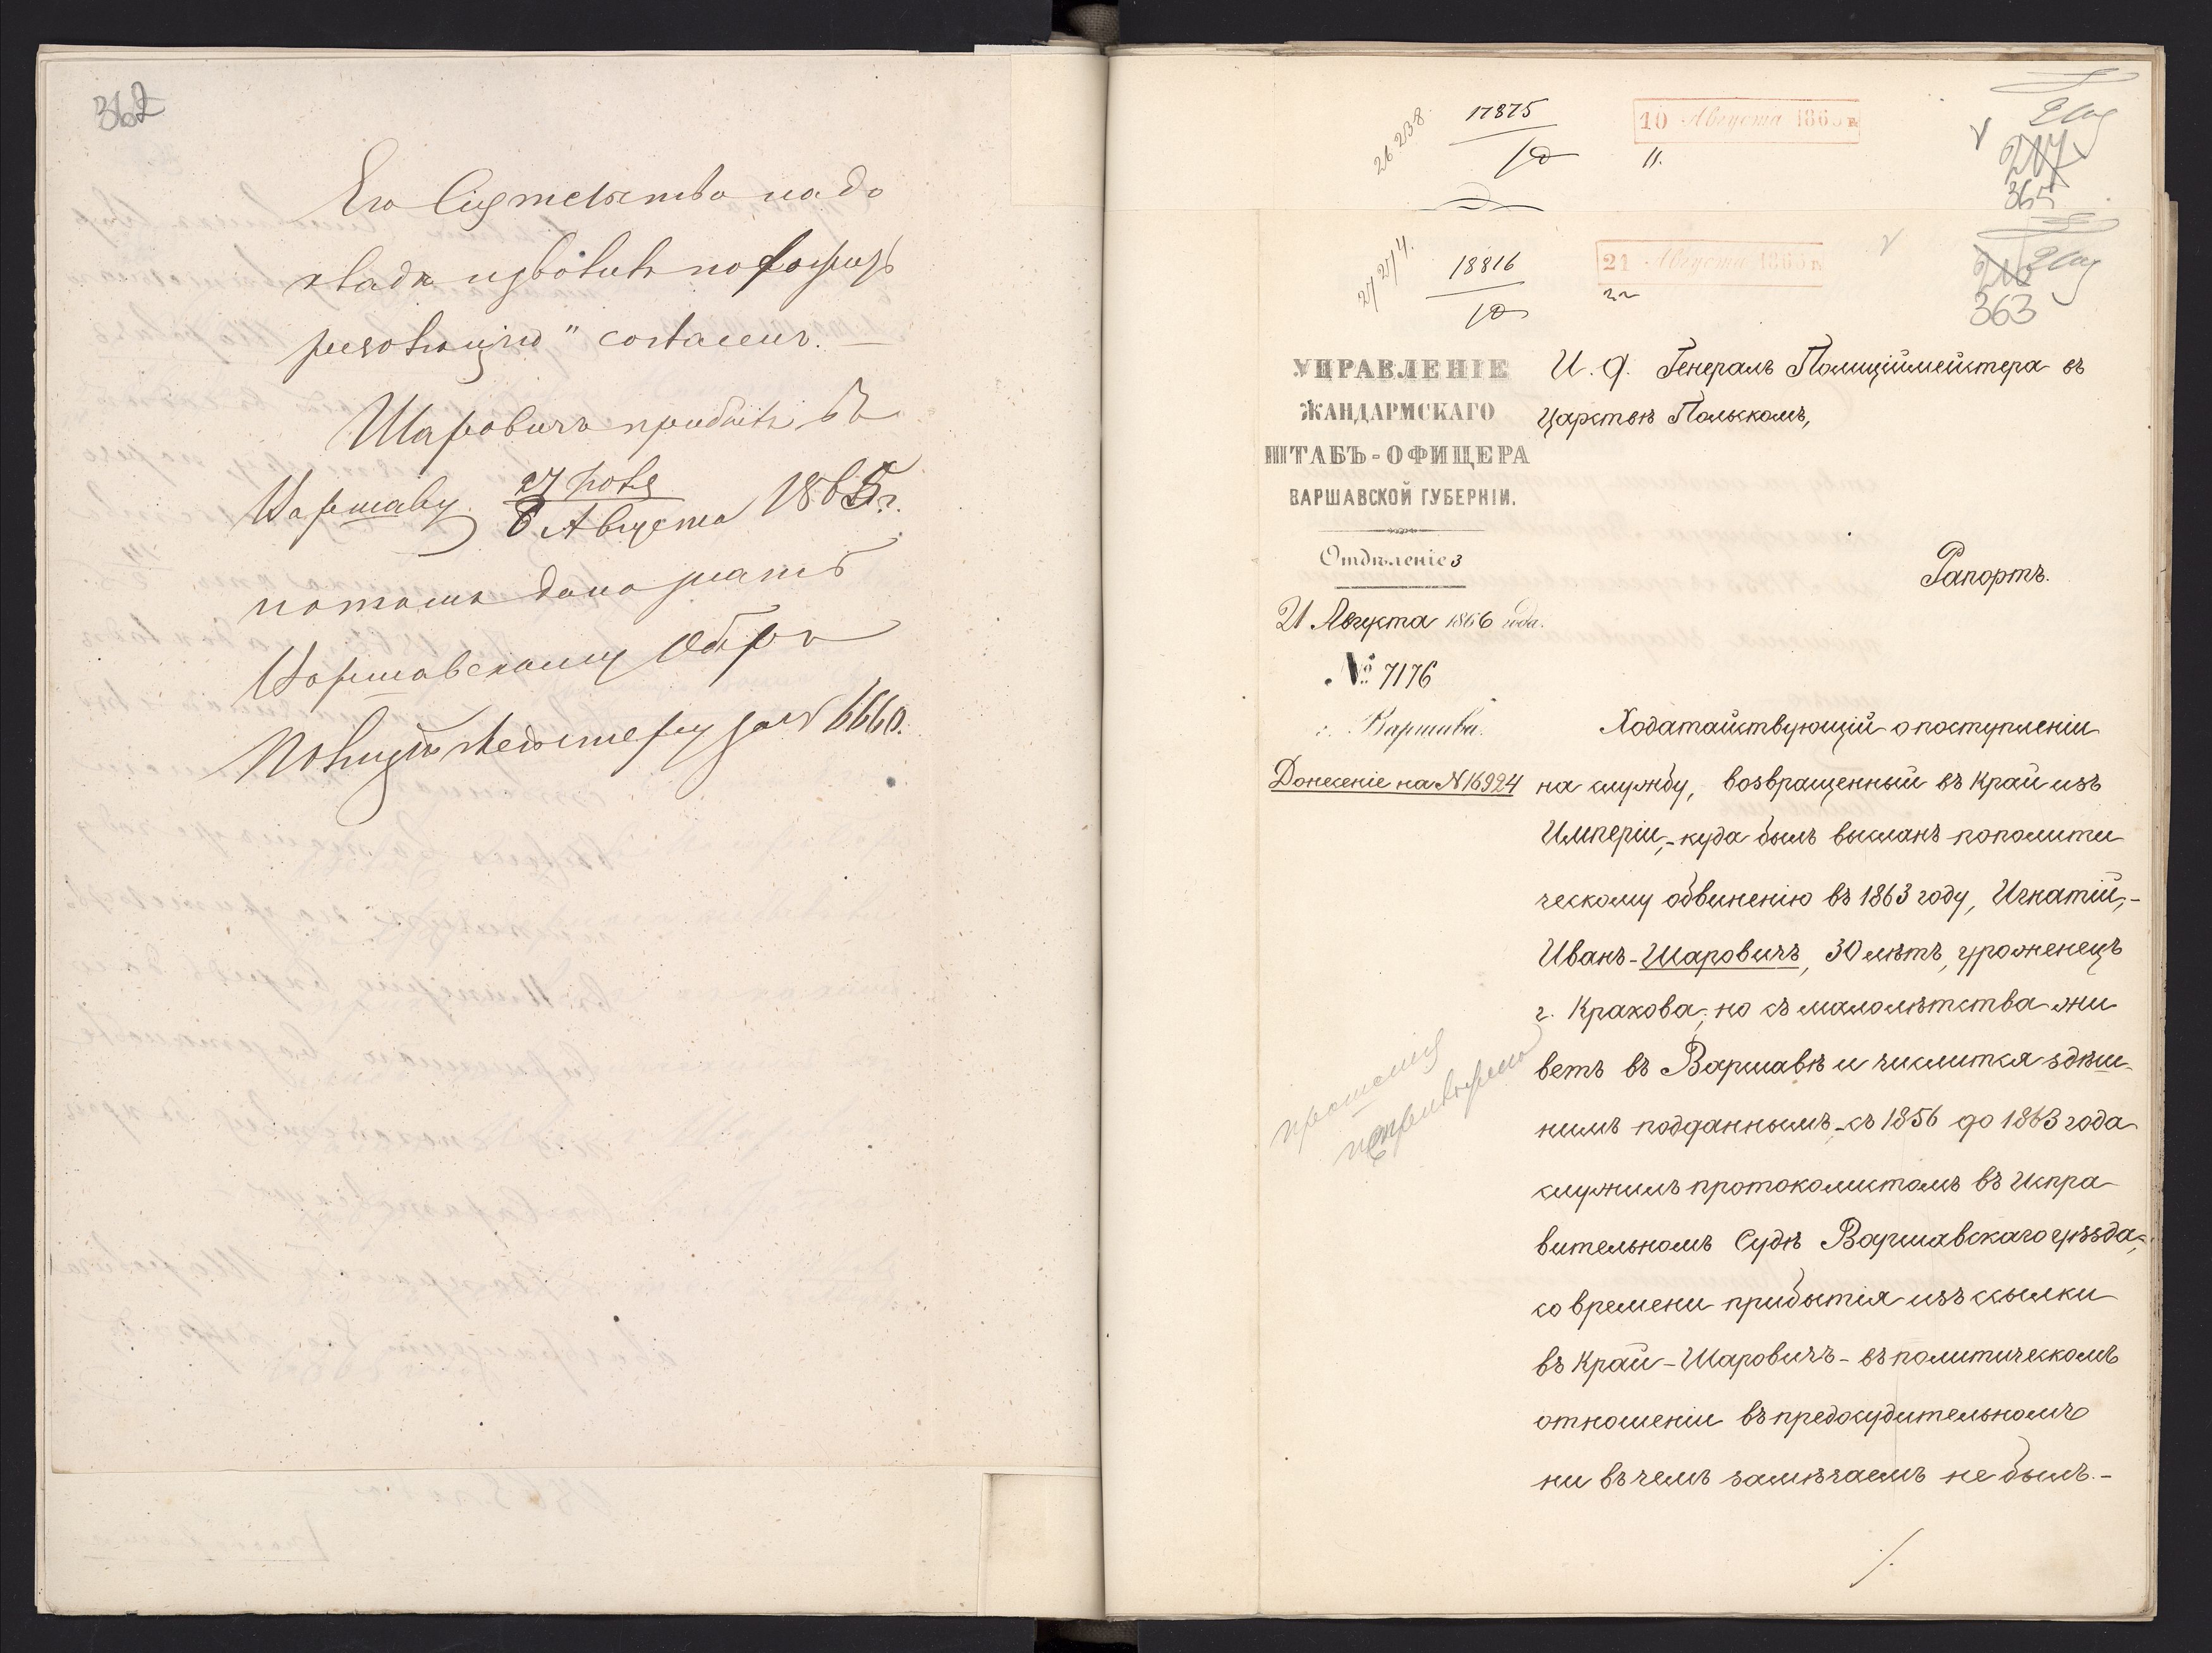 362
Его Сіятельство на до
кладѣ изволилъ положить
резолюцію "согласенъ.
Шаровичъ прибылъ въ
Варшаву 27 Іюля
8 Августа 1865 г.
о томъ дано знать
Варшавскому Оберъ
Полиціймейстеру за № 6660.
26.238.
17875
10 Августа 186
11.
365
27274.
18816
21 Августа 186
22
363
УПРАВЛЕНІЕ
ЖАНДАРМСКАГО
ШТАБЪ-ОФИЦЕРА
ВАРШАВСКОЙ ГУБЕРНІИ.
Отдѣленіе 3
21 Августа 1866 года.
№ 7176
г. Варшава.
Донесеніе на № 16924
И. д. Генералъ Полиціймейстера въ
Царствѣ Польскомъ,
Рапортъ.
Ходатайствующій о поступленіи
на службу, возвращенный въ Край изъ
Имперіи,- куда былъ высланъ по полити
ческому обвиненію въ 1863 году, Игнатій,-
Иванъ-Шаровичъ, 30 лѣтъ, уроженецъ
г. Кракова, но съ малолѣтства жи
ветъ въ Варшавѣ и числится здѣш-
нимъ подданнымъ,- съ 1856 до 1863 года
служилъ протоколистомъ въ Испра
вительномъ Судѣ Варшавскаго уѣзда,-
со времени прибытія изъ ссылки
въ Край - Шаровичъ - въ политическомъ
отношеніи въ предосудительномъ
ни въ чемъ замѣчаемъ не былъ.-
/.